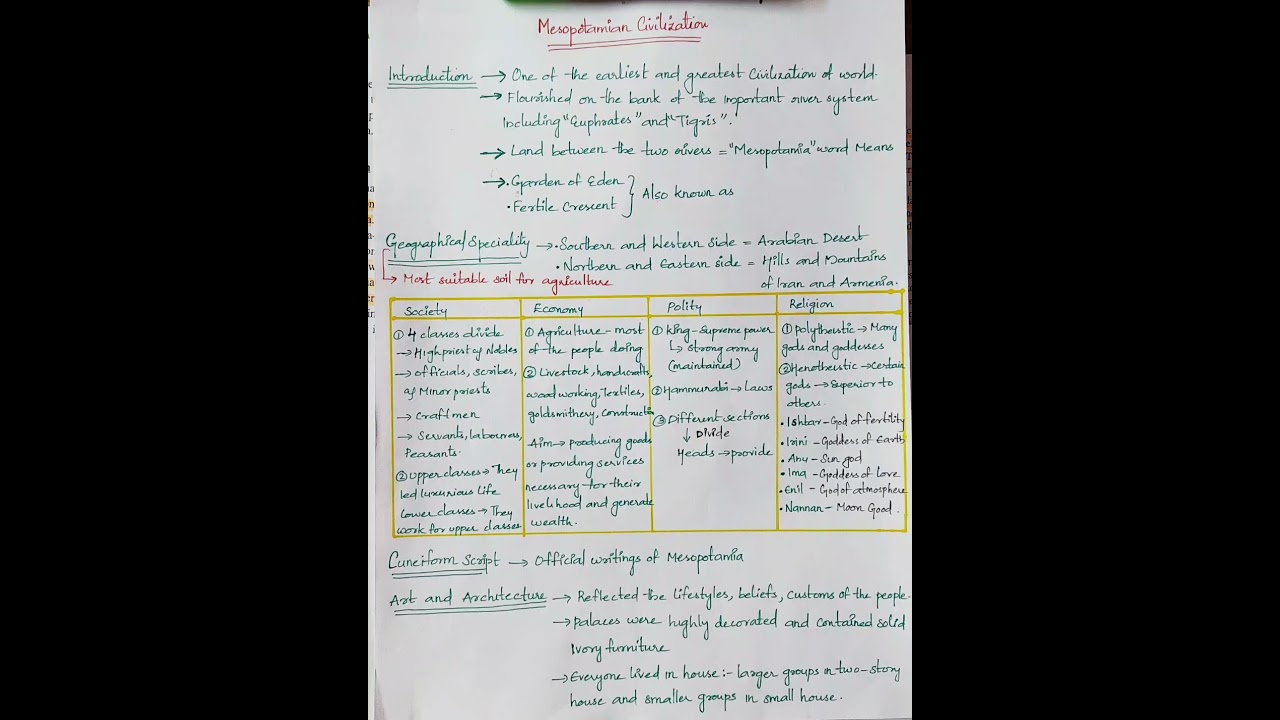 Mesopotamian Civilization
Introduction → One of the earliest and greatest Civilization of world.
→ Flourished on the bank of the important river system
Including "Euphrates" and "Tigris".
→ Land between the two rivers = "Mesopotamia" word Means
→ • Garden of Eden
• Fertile Crescent } Also known as
Geographical Speciality → • Southern and Western side = Arabian Desert
• Northern and Eastern side = Hills and Mountains
of Iran and Armenia.
→ Most suitable soil for agriculture
Society
① 4 classes divide
→ High priest & Nobles
→ officials, scribes,
& Minor priests
→ Craftmen
→ Servants, labourers,
Peasants.
② Upper classes → They
led luxurious life
Lower classes → They
work for upper classes
Economy
① Agriculture – most
of the people doing
② Livestock, handicrafts,
wood working, Textiles,
goldsmithery, Constructin
Aim → producing goods
or providing services
necessary for their
livelihood and generate
wealth.
Polity
① King – Supreme power
↳ strong army
(maintained)
② Hammurabi → Laws
③ Different sections
↓ Divide
Heads → provide
Religion
① Polytheistic → Many
gods and goddesses
② Henotheistic → Certain
gods → Superior to
others.
• Ishbar – God of fertility
• Irini – Goddess of Earth
• Anu – Sun god
• Ima – Goddess of Love
• Enil – God of atmosphere
• Nannan – Moon Good.
Cuneiform Script → Official writings of Mesopotamia
Art and Architecture → Reflected the lifestyles, beliefs, customs of the people.
→ Palaces were highly decorated and contained solid
Ivory furniture
→ Everyone lived in house :- larger groups in two-story
house and smaller groups in small house.